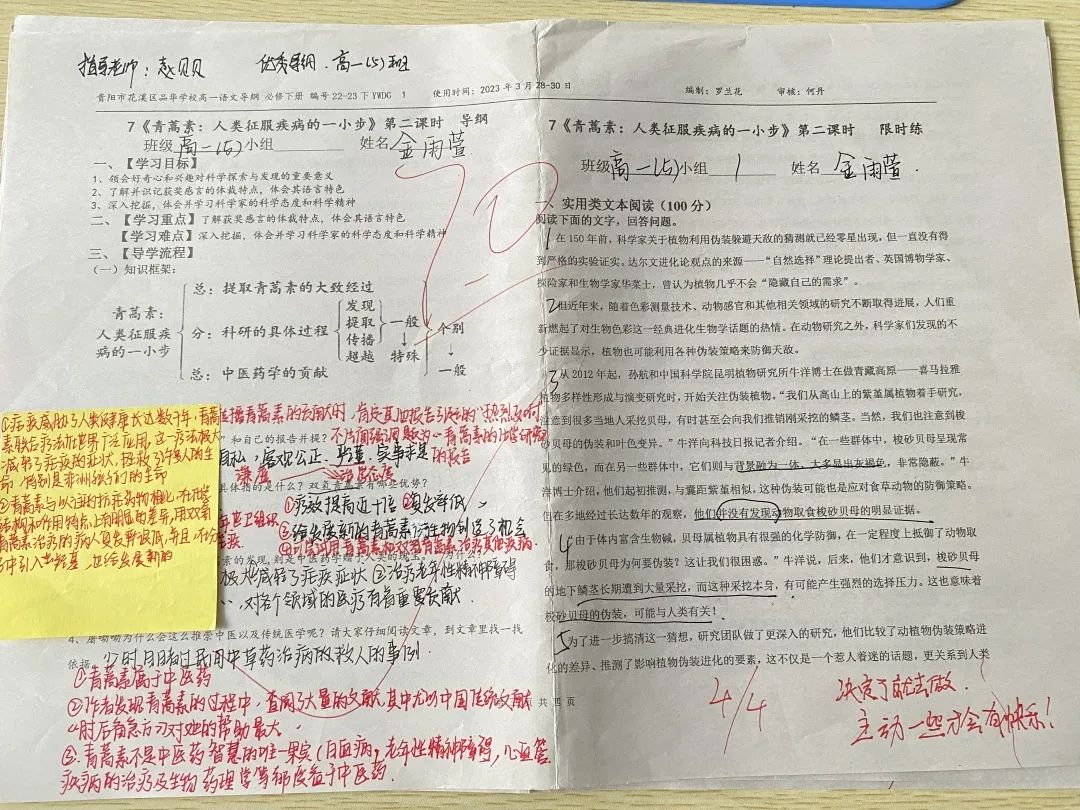 指导老师：赵贝贝 优秀导纲．高一(5)班
贵阳市花溪区品华学校高一语文导纲 必修下册 编号 22-23下YWDG 1 使用时间：2023年3月28-30日
7《青蒿素：人类征服疾病的一小步》第二课时 导纲
班级高一(5)小组 姓名金雨萱
一、【学习目标】
1、领会好奇心和兴趣对科学探索与发现的重要意义
2、了解并识记获奖感言的体裁特点，体会其语言特色
3、深入挖掘，体会并学习科学家的科学态度和科学精神
二、【学习重点】了解获奖感言的体裁特点，体会其语言特色
【学习难点】深入挖掘，体会并学习科学家的科学态度和科学精神
三、【导学流程】
（一）知识框架：
青蒿素：
人类征服疾
病的一小步
总：提取青蒿素的大致经过
分：科研的具体过程
发现
提取
传播
超越
一般
↓
特殊
个别
↓
一般
总：中医药学的贡献
①疟疾威胁了人类健康长达数千年，青蒿
素联合疗法在世界广泛应用，这一疗法极大
减轻了疟疾的症状，拯救了许多人的生
命，特别是非洲孩子们的生命
②青蒿素与以往的抗疟药物相比，在
结构和作用特点上有明显的差异，用双氢
青蒿素治疗的病人复发率很低，并且
中引入
”和自己的报告并提？
自私，客观公正、严谨、实事求是
的报告
谦虚
具体指的是什么？双氢青蒿素有哪些优势？
①疗效提高近十倍 ②复发率低
卫组织
③给发展新的青蒿素衍生物创造了机会
极大减轻了疟疾症状 ②治疗老年性精神障碍
，对各个领域的医疗有着重要贡献
4、屠呦呦为什么会这么推崇中医以及传统医学呢？请大家仔细阅读文章，到文章里找一找
依据。少时目睹过民间中草药治病救人的事例
①青蒿素属于中医药
②作者发现青蒿素的过程中，查阅了大量的文献，其中尤以中国传统文献
《肘后备急方》对她的帮助最大
③.青蒿素不是中医药智慧的唯一果实（白血病，老年性精神障碍，心血管
疾病的治疗及生物药理学等都受益于中医药．
编制：罗兰花 审核：何丹
7《青蒿素：人类征服疾病的一小步》第二课时 限时练
班级高一(5)小组 1 姓名金雨萱．
70
一、实用类文本阅读（100分）
阅读下面的文字，回答问题。
1在150年前，科学家关于植物利用伪装躲避天敌的猜测就已经零星出现，但一直没有得
到严格的实验证实。达尔文进化论观点的来源——“自然选择”理论提出者、英国博物学家、
探险家和生物学家华莱士，曾认为植物几乎不会“隐藏自己的需求”。
2但近年来，随着色彩测量技术、动物感官和其他相关领域的研究不断取得进展，人们重
新燃起了对生物色彩这一经典进化生物学话题的热情。在动物研究之外，科学家们发现的不
少证据显示，植物也可能利用各种伪装策略来防御天敌。
3从2012年起，孙航和中国科学院昆明植物研究所牛洋博士在做青藏高原——喜马拉雅
植物多样性形成与演变研究时，开始关注伪装植物。“我们从高山上的紫堇属植物着手研究，
注意到很多当地人采挖贝母，有时甚至会向我们推销刚采挖的鳞茎。当然，我们也注意到梭
砂贝母的伪装和叶色变异。”牛洋向科技日报记者介绍。“在一些群体中，梭砂贝母呈现常
见的绿色，而在另一些群体中，它们则与背景融为一体，大多显出灰褐色，非常隐蔽。”牛
洋博士介绍，他们起初推测，与囊距紫堇相似，这种伪装可能也是应对食草动物的防御策略。
但在多地经过长达数年的观察，他们并没有发现动物取食梭砂贝母的明显证据。
4由于体内富含生物碱，贝母属植物具有很强的化学防御，在一定程度上抵御了动物取
食，那梭砂贝母为何要伪装？这让我们很困惑。”牛洋说，后来，他们才意识到，梭砂贝母
的地下鳞茎长期遭到大量采挖，而这种采挖本身，有可能产生强烈的选择压力。这也意味着
梭砂贝母的伪装，可能与人类有关！
5为了进一步搞清这一猜想，研究团队做了更深入的研究，他们比较了动植物伪装策略进
化的差异、推测了影响植物伪装进化的要素，这不仅是一个惹人着迷的话题，更关系到人类
共四页
4/4
决定了就去做．
主动一些才会有快乐！